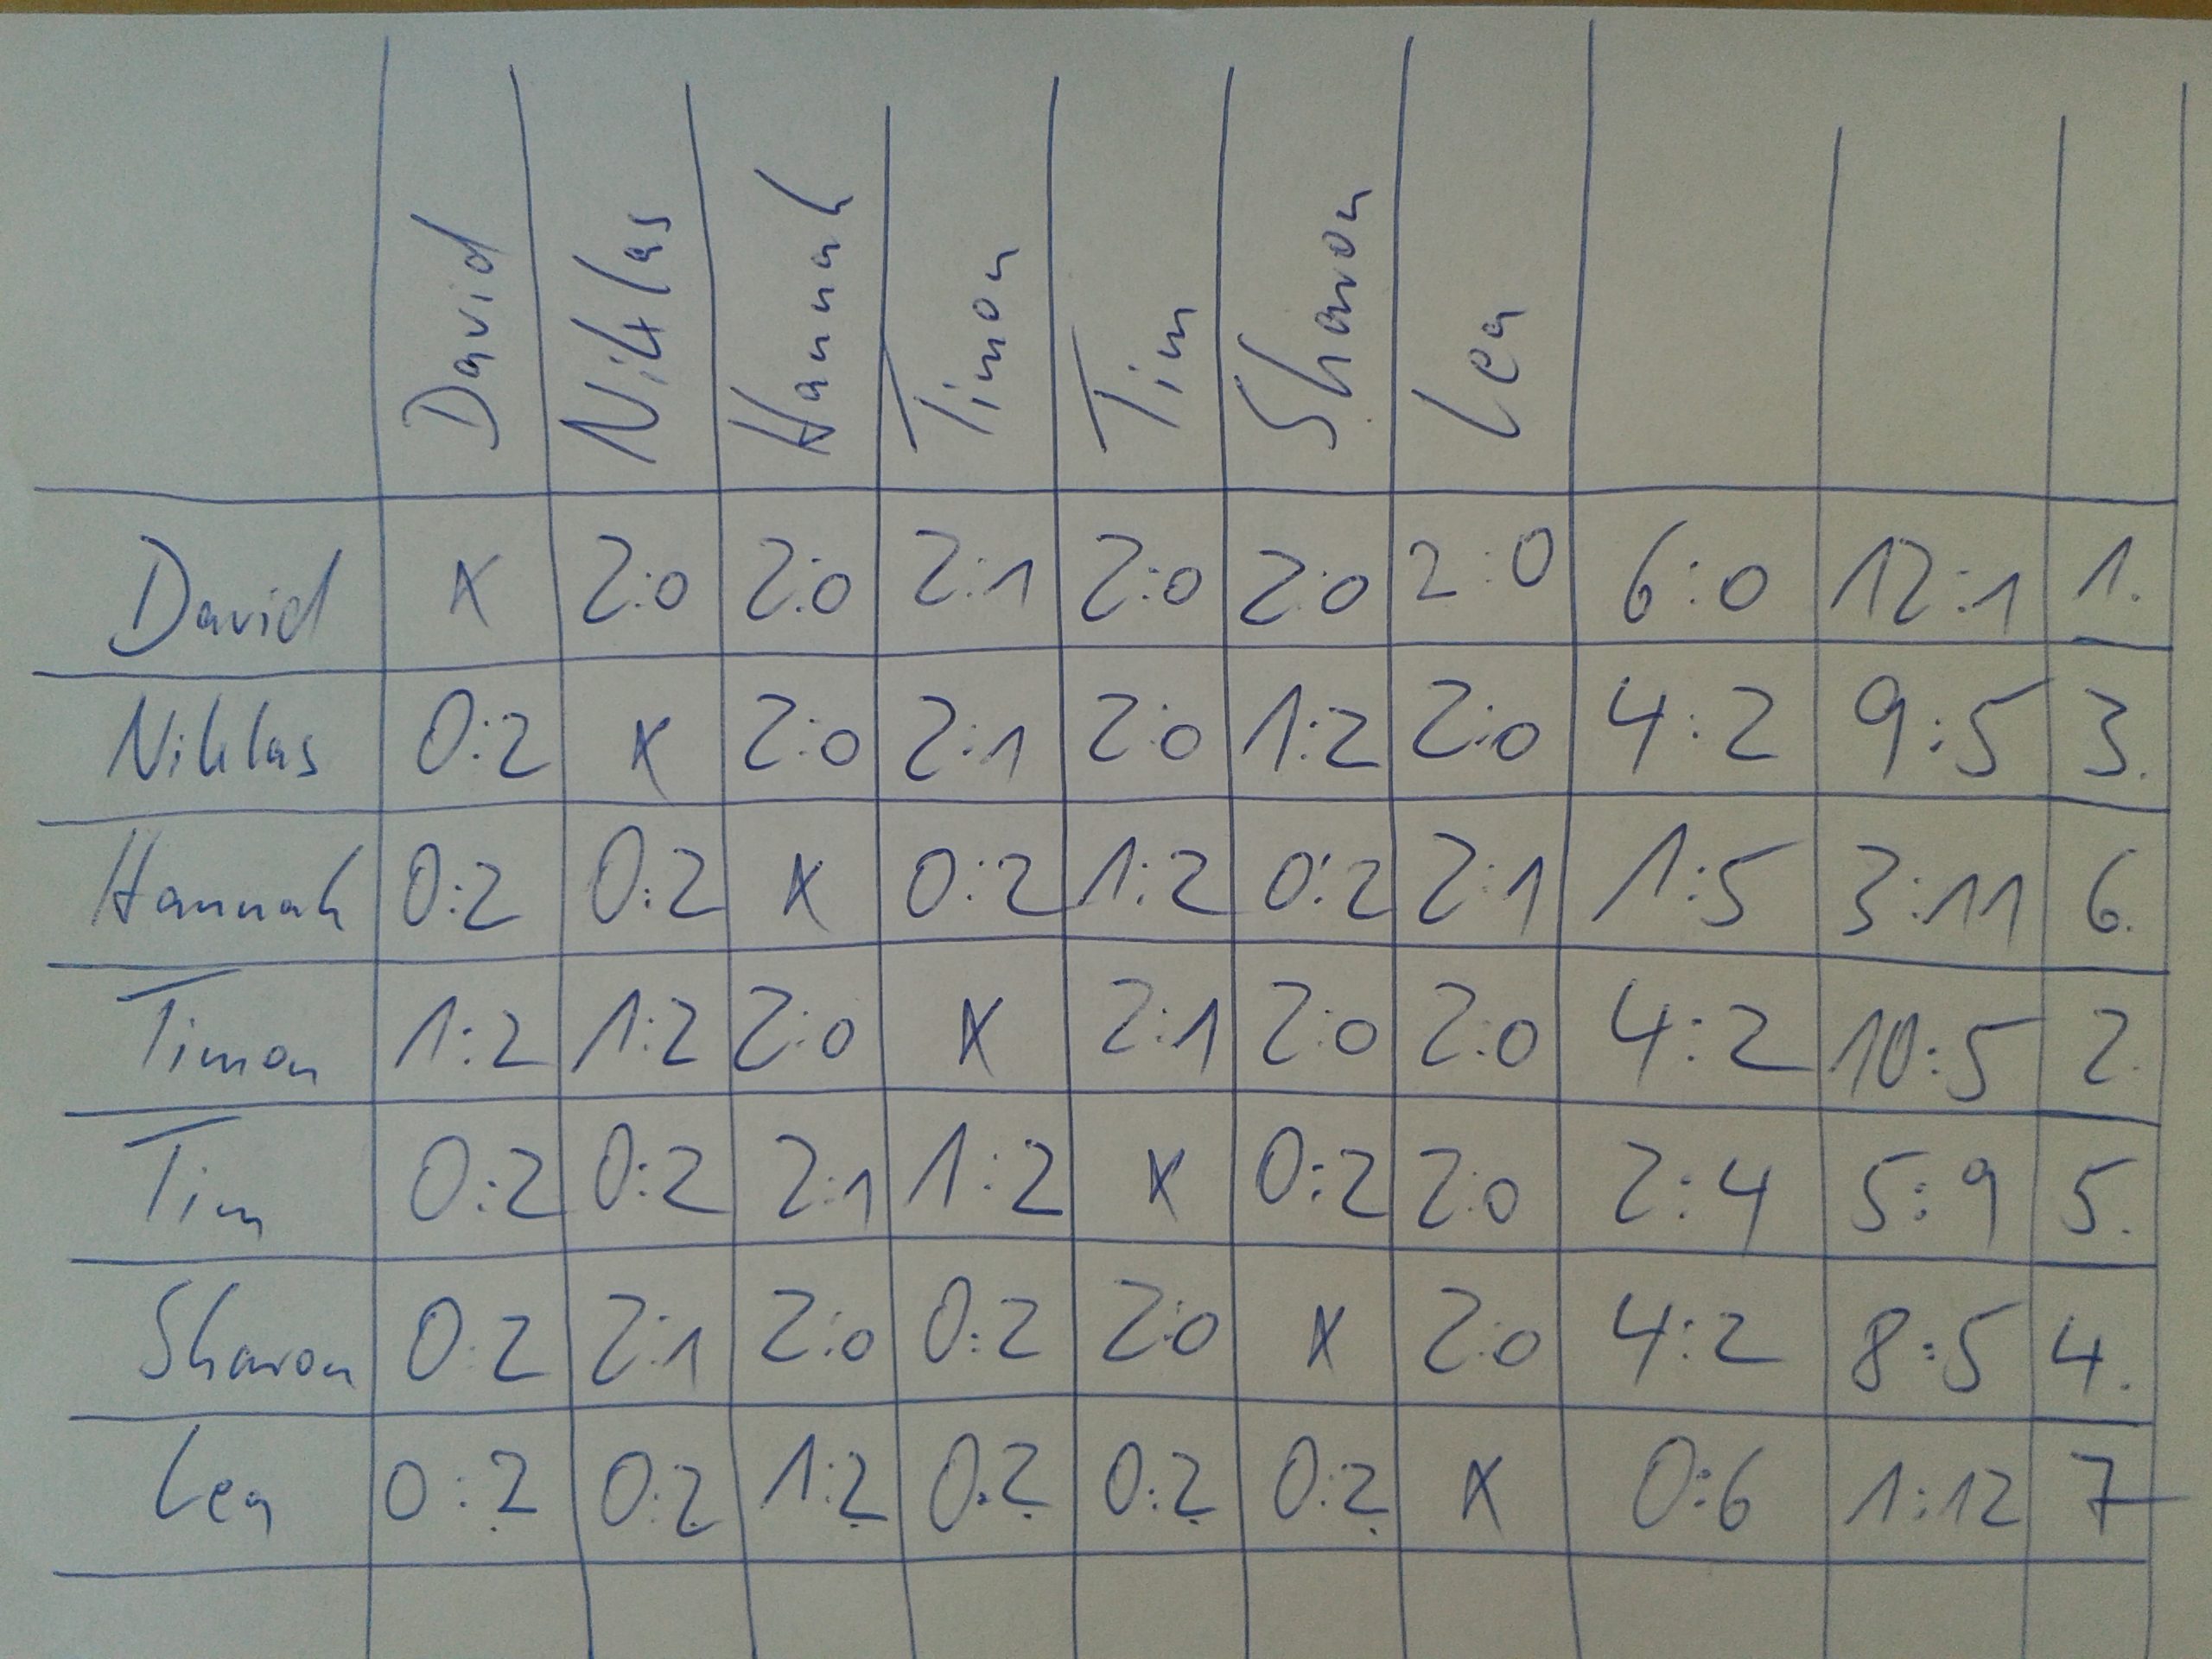 David Niklas Hannah Timon Tim Sharon Lea
David x 2:0 2:0 2:1 2:0 2:0 2:0 6:0 12:1 1.
Niklas 0:2 x 2:0 2:1 2:0 1:2 2:0 4:2 9:5 3.
Hannah 0:2 0:2 x 0:2 1:2 0:2 2:1 1:5 3:11 6.
Timon 1:2 1:2 2:0 x 2:1 2:0 2:0 4:2 10:5 2.
Tim 0:2 0:2 2:1 1:2 x 0:2 2:0 2:4 5:9 5.
Sharon 0:2 2:1 2:0 0:2 2:0 x 2:0 4:2 8:5 4.
Lea 0:2 0:2 1:2 0:2 0:2 0:2 x 0:6 1:12 7